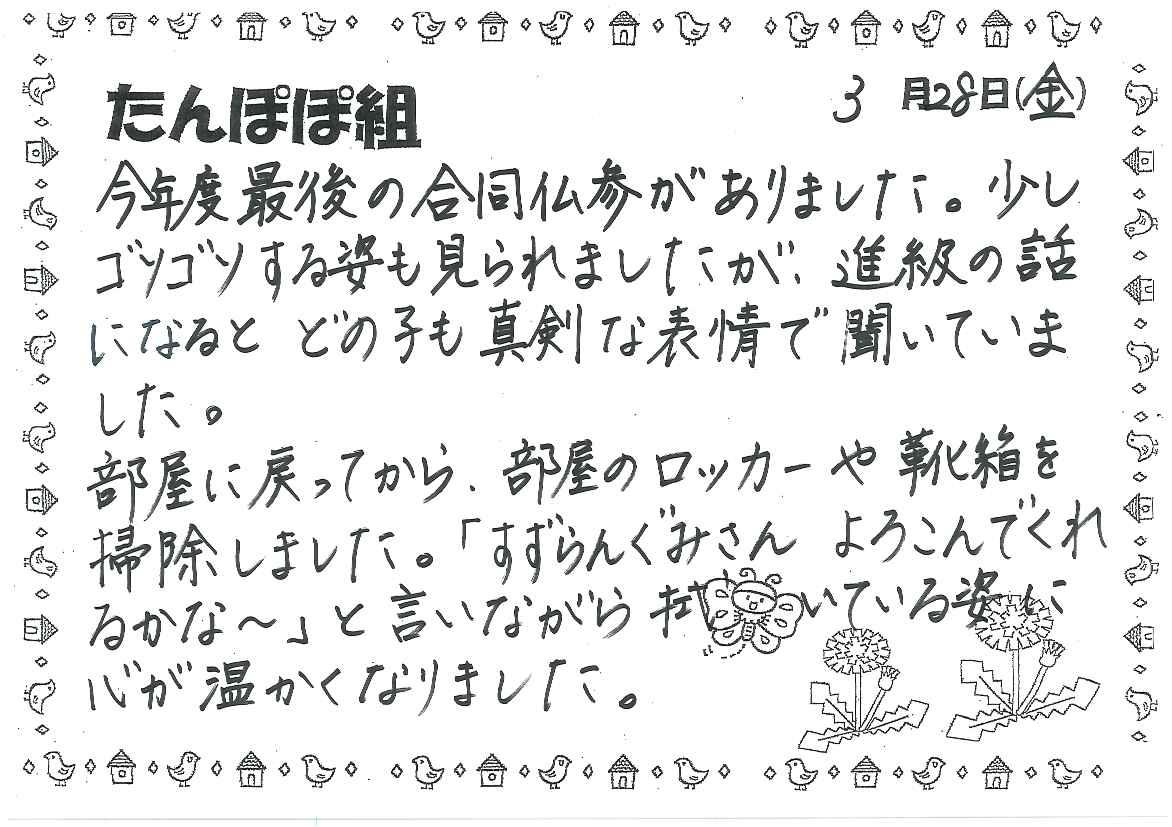 たんぽぽ組
3月28日(金)
今年度最後の合同仏参がありました。少し
ゴソゴソする姿も見られましたが、進級の話
になると どの子も真剣な表情で聞いていま
した。
部屋に戻ってから、部屋のロッカーや靴箱を
掃除しました。「すずらんぐみさん よろこんでくれ
るかな～」と言いながら拭いている姿に
心が温かくなりました。